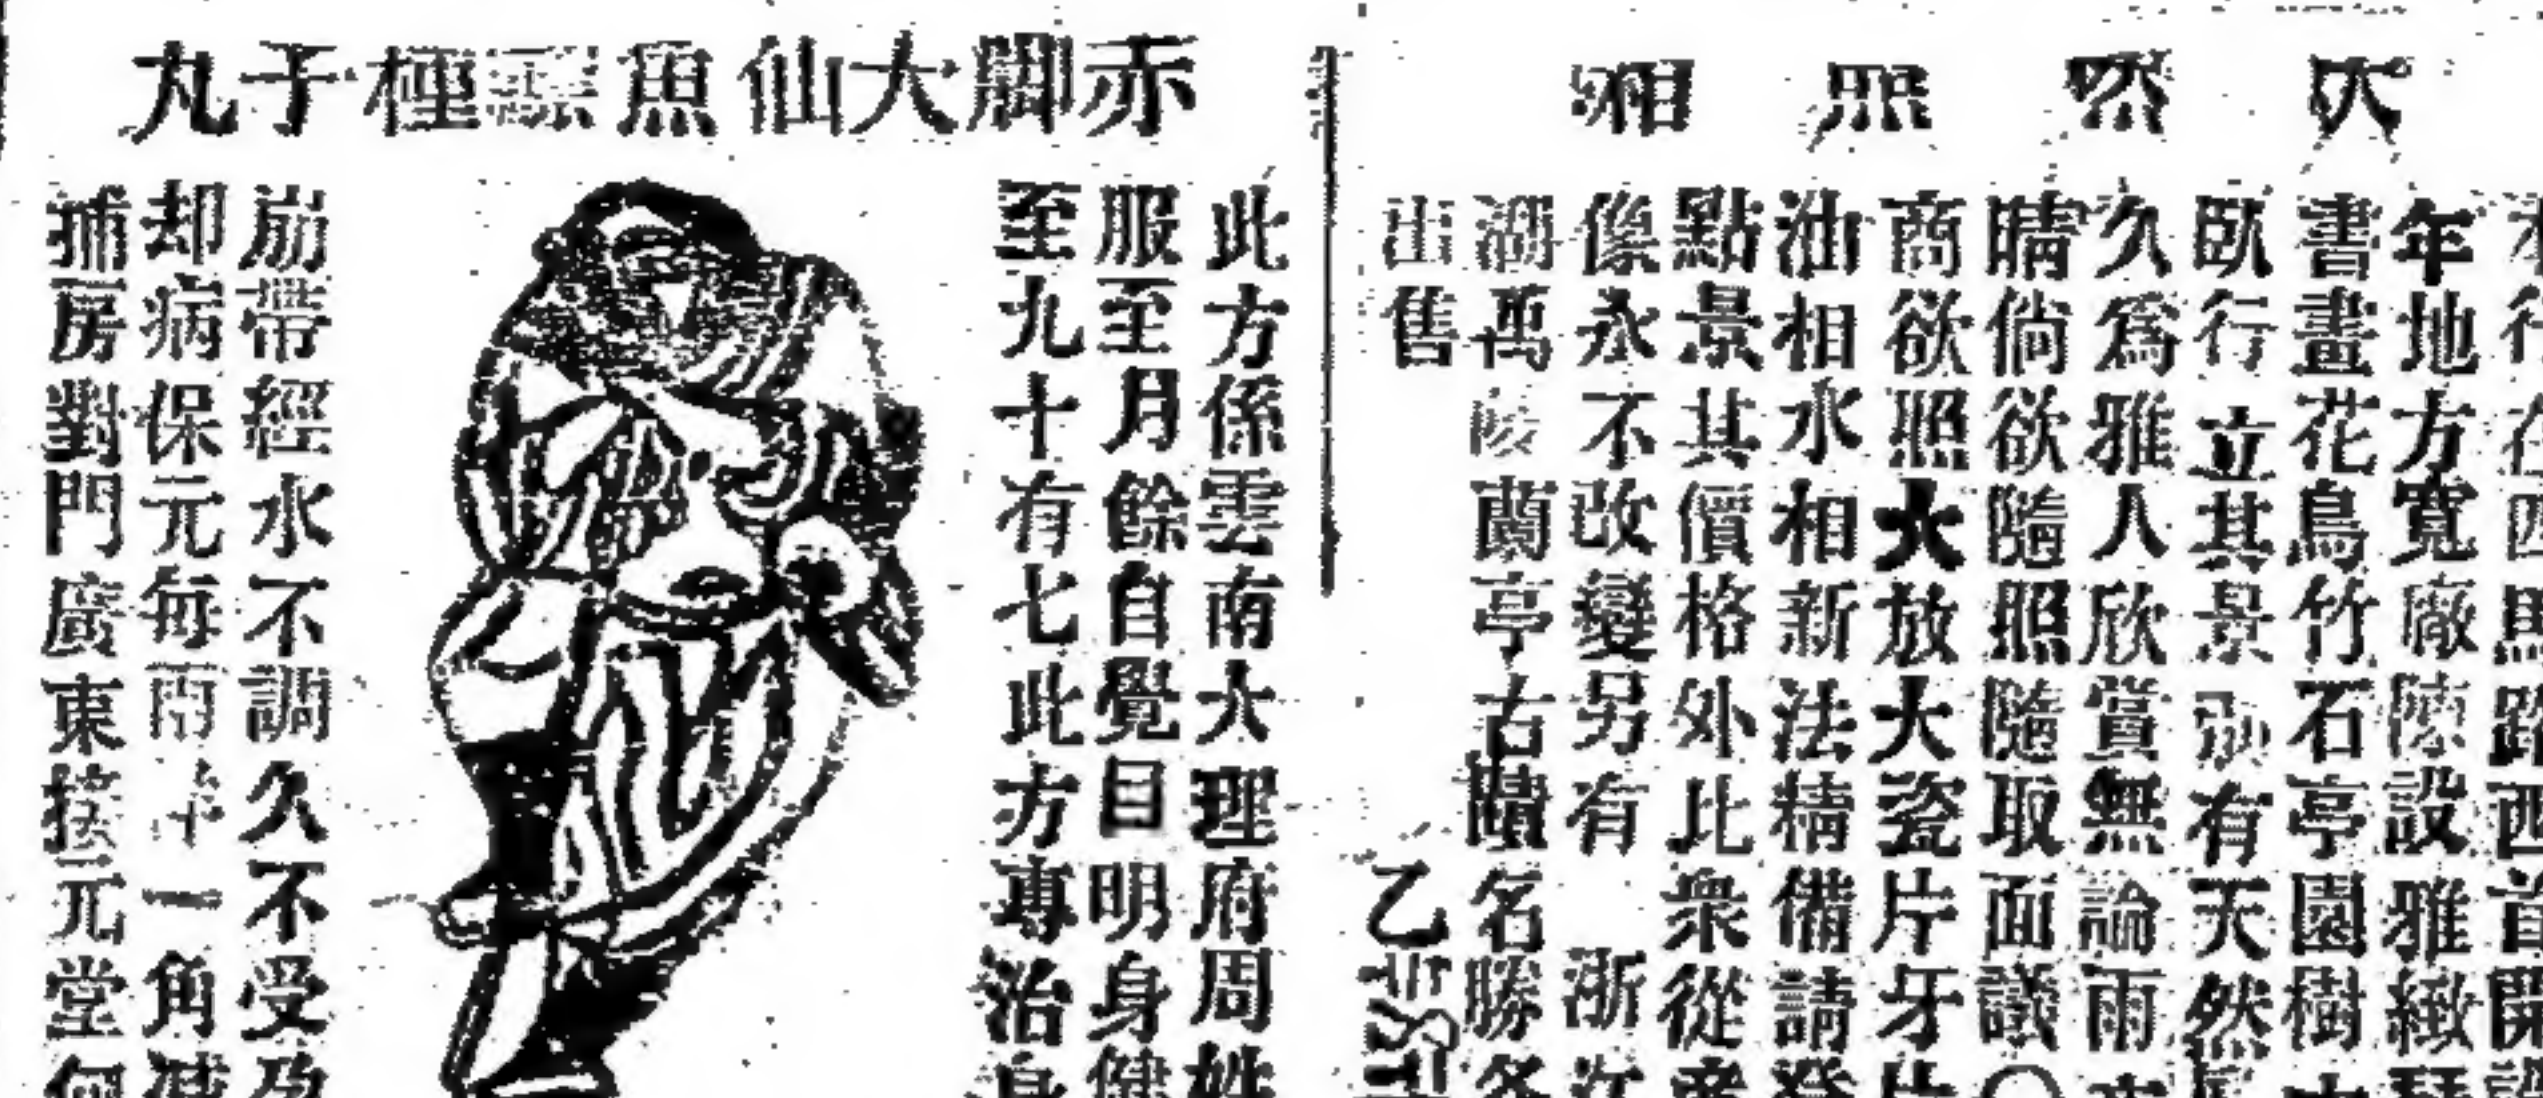 照相
本行在四馬路西首開
年地方寬廠陳設雅緻
書畫花鳥竹石亭園樹
臥行立其景別有天然
久爲雅人欣賞無論雨
晴倘欲隨照隨取面議〇
商欲照大放大瓷片牙片
油相水相新法精備請
點景其價格外比衆從
像永不改變另有 浙江
湖萬陵蘭亭古蹟名勝各
出售
赤脚大仙魚鰾種子丸
此方係雲南大理府周姓
服至月餘自覺目明身健
至九十有七此方專治
崩帶經水不調久不受孕
却病保元每兩洋一角
捕房對門廣東探元堂